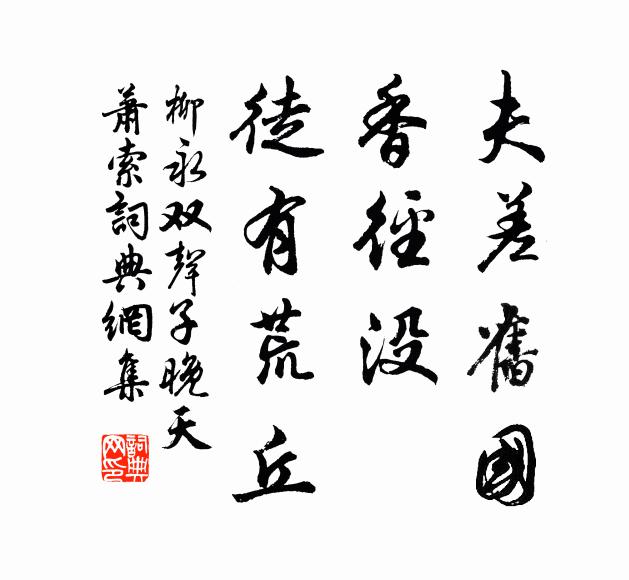 夫差舊國
香徑没
徒有荒丘
柳永双聲子晚天
蕭索詞典網集
詞典
网印